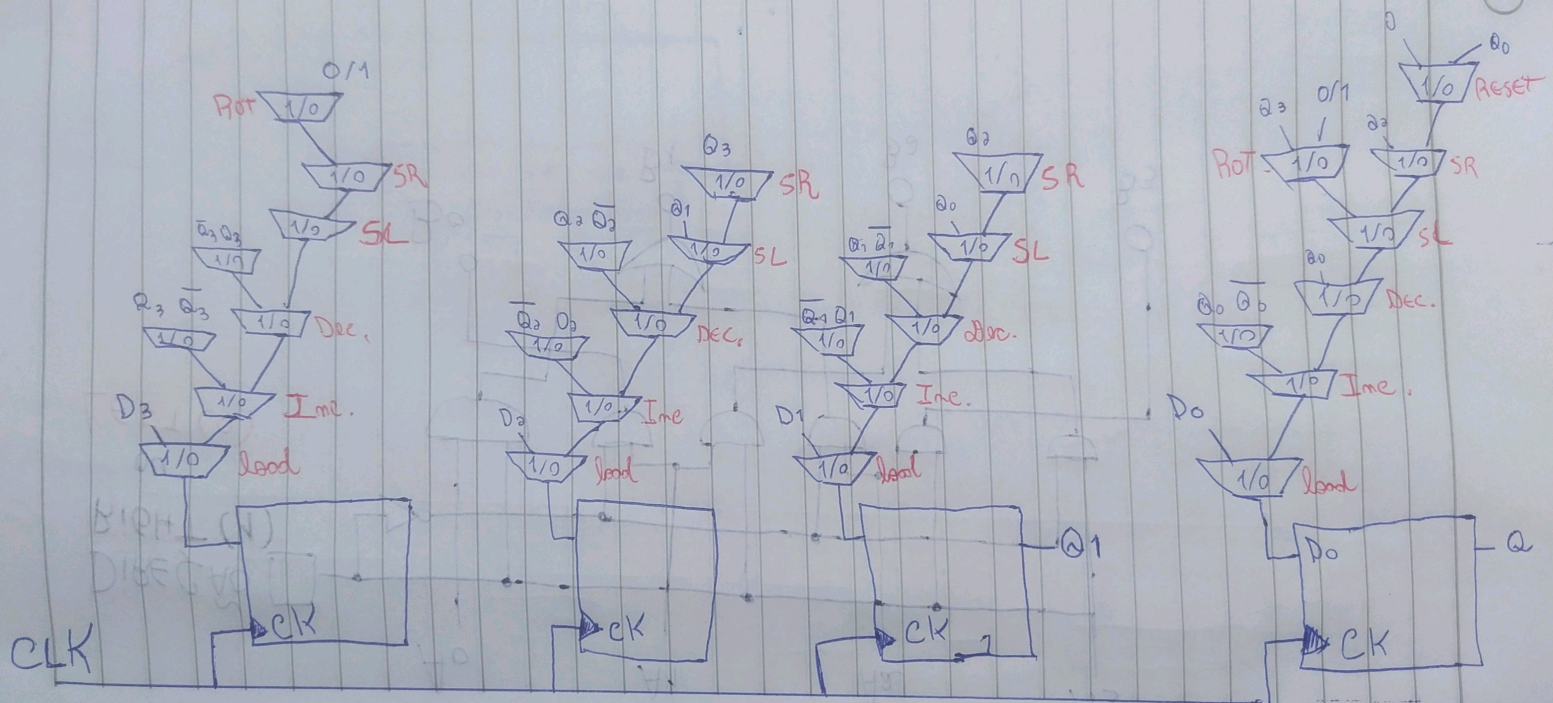 0/1
ROT 1/0
1/0 SR
1/0 SL
Q̅3 Q3
1/0
1/0 Dec.
Q3 Q̅3
1/0
1/0 Inc.
D3
1/0 load
CK
Q3
1/0 SR
Q1
1/0 SL
Q2 Q̅2
1/0
1/0 DEC.
Q̅2 Q2
1/0
1/0 Inc
D2
1/0 load
CK
Q2
1/0 SR
Q0
1/0 SL
Q1 Q̅1
1/0
1/0 Dec.
Q̅1 Q1
1/0
1/0 Inc.
D1
1/0 load
Q1
CK
0 Q0
1/0 RESET
Q3 0/1
ROT 1/0
1/0 SR
1/0 SL
Q0
1/0 Dec.
Q0 Q̅0
1/0
1/0 Inc.
D0
1/0 load
D0 Q
CK
CLK